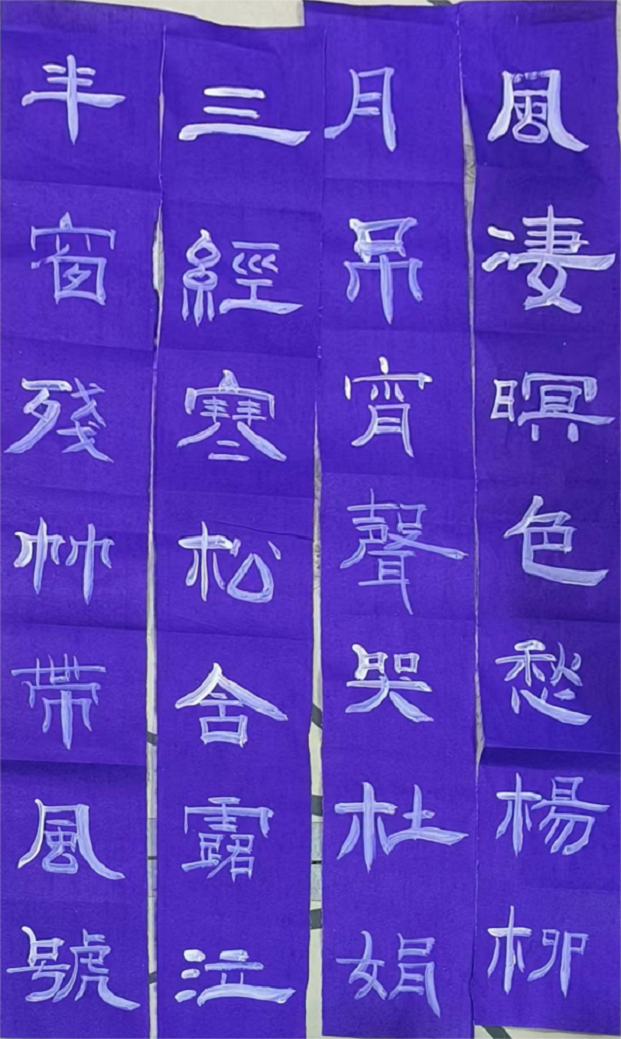 風凄暝色愁楊柳
月吊宵聲哭杜娟
三經寒松含露泣
半窗殘竹帶風號